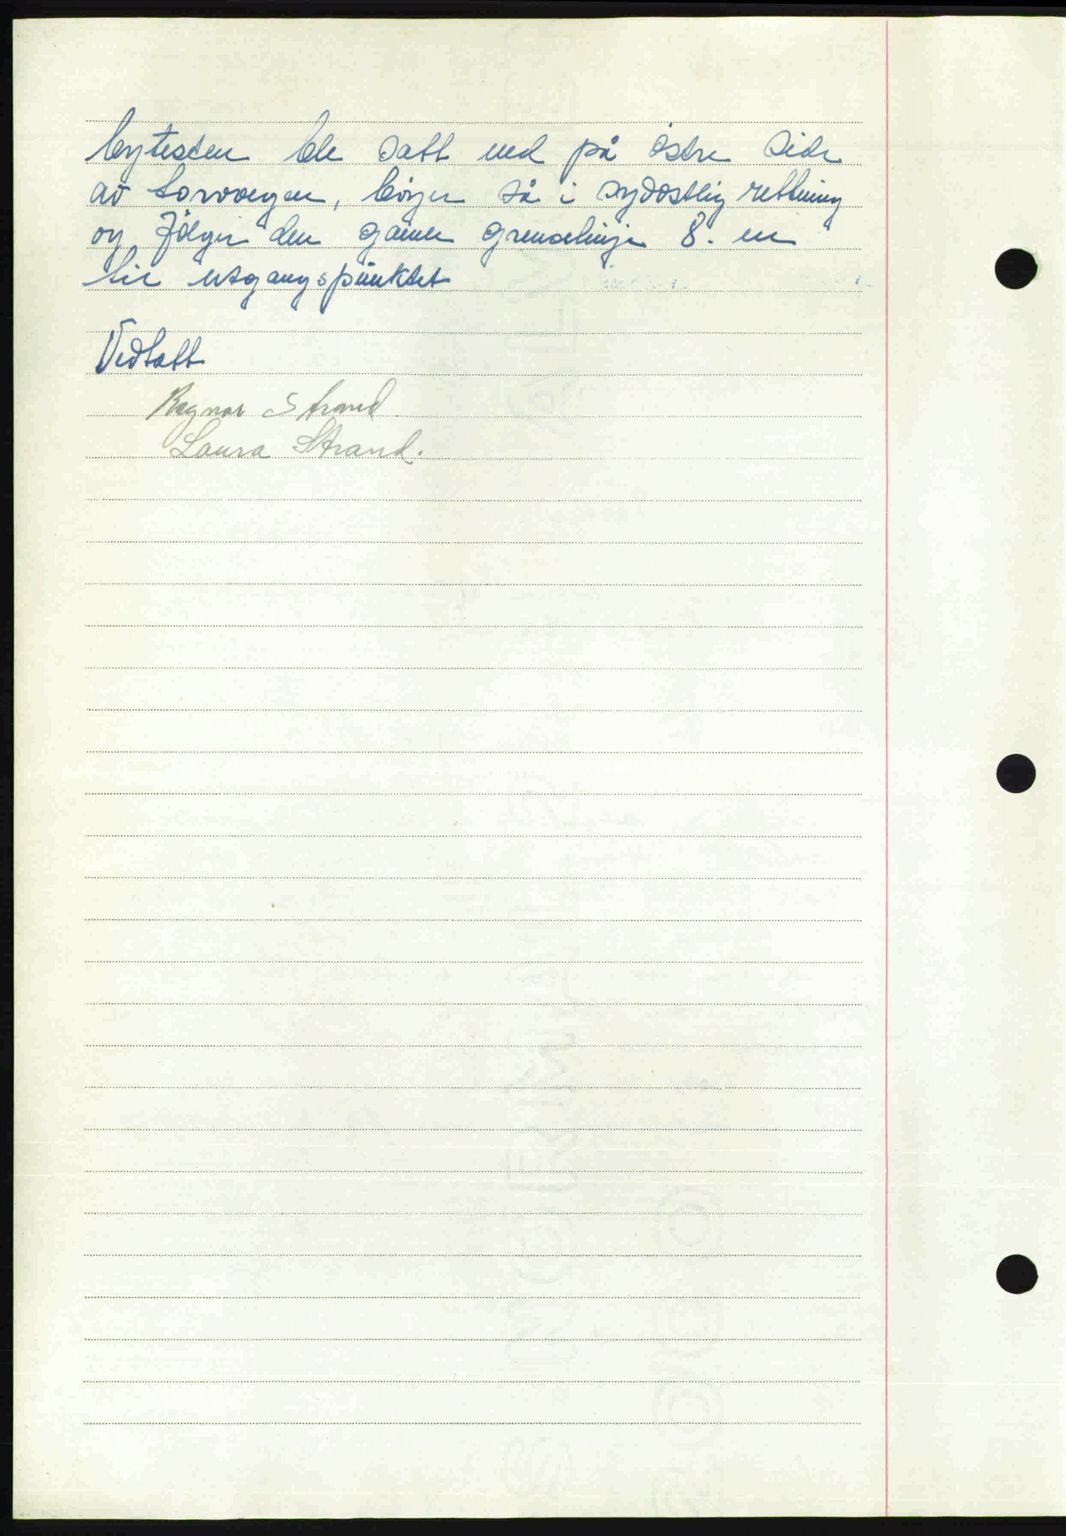 bytesten ble satt ned på östre side
av torvvegen, böyer så i sydöstlig rettning
og fölger den gamle grenselinje 8. m
til utgangspunktet
Vedtatt
Ragnar Strand
Laura Strand.